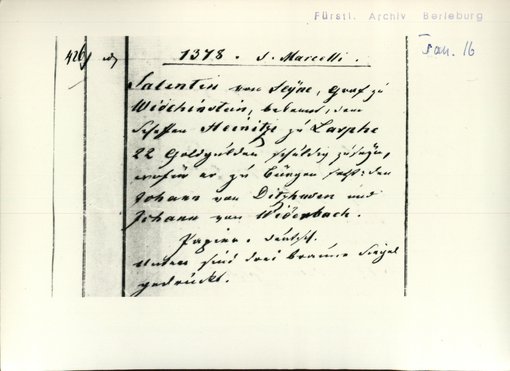 Fürstl. Archiv Berleburg
Jan. 16
426
1378. s. Marcelli.
Salentin von Seÿne, Graf zu
Widchinstein, bekennt, dem
Scheffen Heinitze zu Lasphe
22 Goldgulden schuldig zu seÿn,
wofür er zu Bürgen setzt: den
Johann von Ditzhusen und
Johann von Widenbach.
Papier. deutsch.
Unten sind drei braune Siegel
gedruckt.